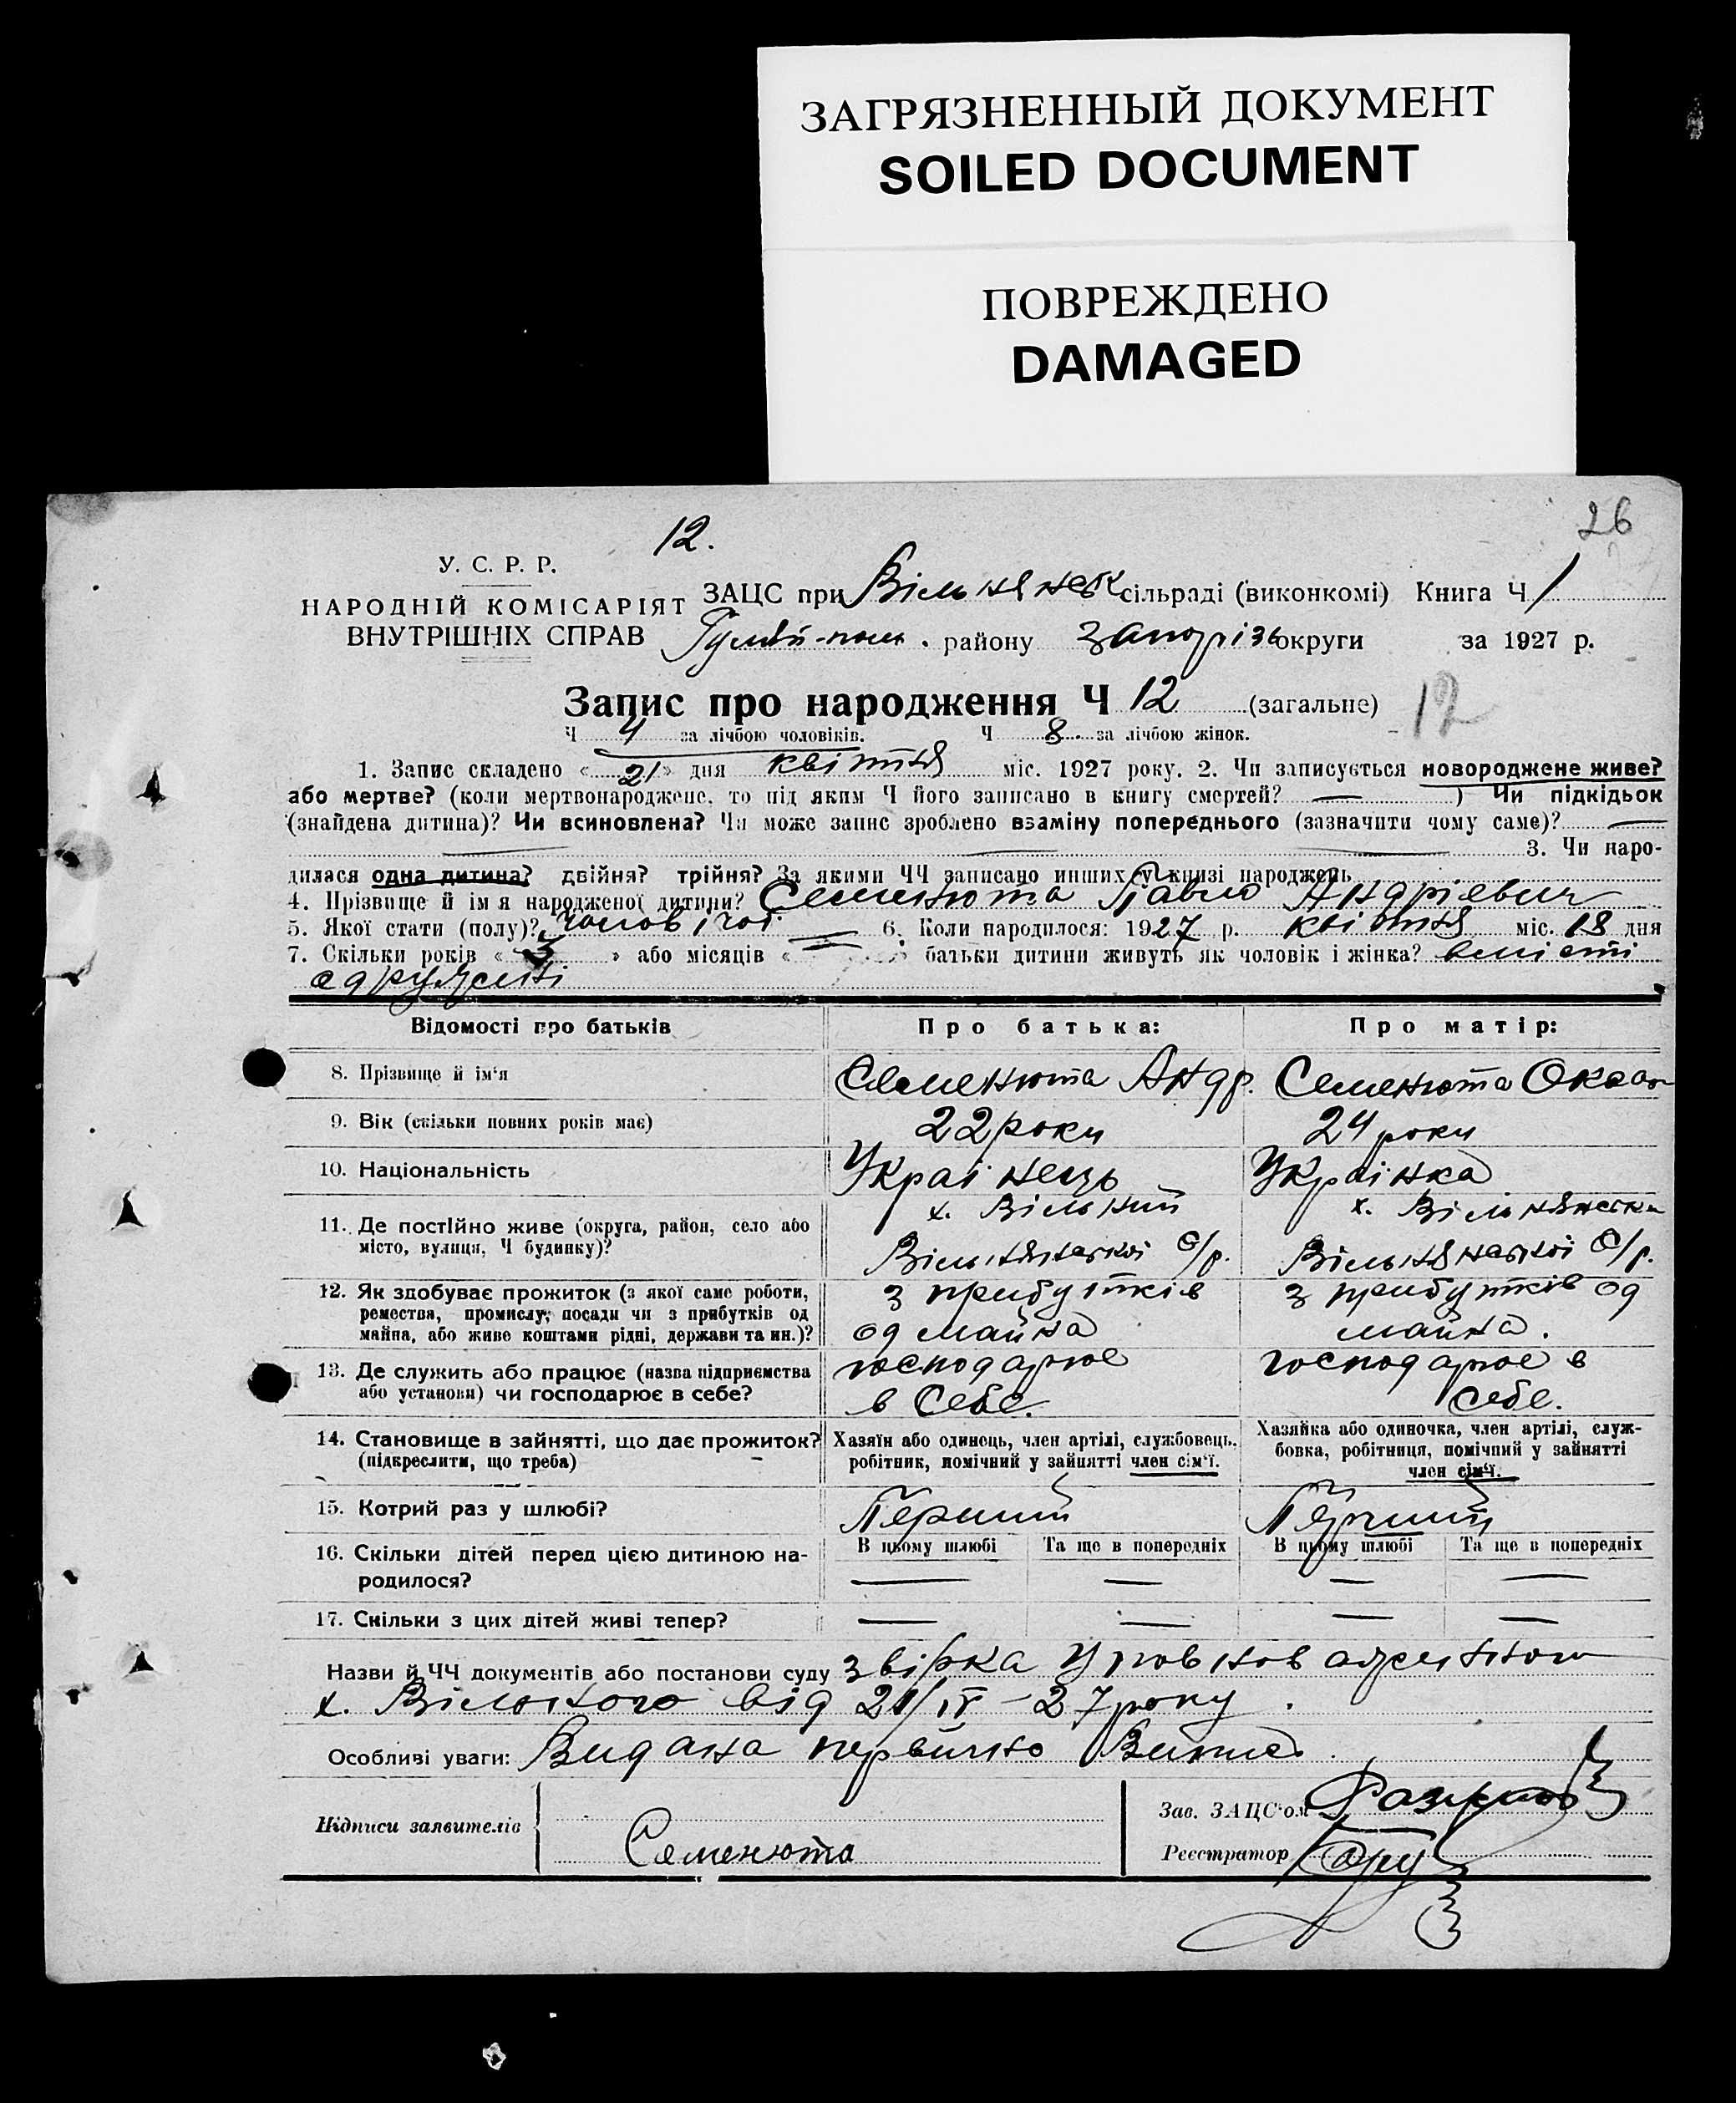 ЗАГРЯЗНЕННЫЙ ДОКУМЕНТ
SOILED DOCUMENT
ПОВРЕЖДЕНО
DAMAGED
26
12.
У. С. Р. Р.
НАРОДНІЙ КОМІСАРІЯТ
ВНУТРІШНІХ СПРАВ
ЗАЦС при Вільнянськ сільраді (виконкомі) Книга Ч 1
Гуляй-поль. району Запорізь округи за 1927 р.
Запис про народження Ч 12 (загальне) 12
Ч 4 за лічбою чоловіків. Ч 8 за лічбою жінок.
1. Запис складено « 21 » дня квітня міс. 1927 року. 2. Чи записується новороджене живе?
або мертве? (коли мертвонароджене, то під яким Ч його записано в книгу смертей? — ) Чи підкідьок
(знайдена дитина)? Чи всиновлена? Чи може запис зроблено взаміну попереднього (зазначити чому саме)? —
— — — 3. Чи наро-
дилася одна дитина? двійня? трійня? За якими ЧЧ записано инших у книзі народжень
4. Прізвище й ім я народженої дитини? Семенюта Павло Андріевич
5. Якої стати (полу)? чоловічої 6. Коли народилося: 1927 р. квітня міс. 18 дня
7. Скільки років « 3 » або місяців « — » батьки дитини живуть як чоловік і жінка?
одружені
Відомості про батьків Про батька: Про матір:
8. Прізвище й ім‘я Семенюта Андр. Семенюта Оксан
9. Вік (скільки повних років має) 22 роки 24 роки
10. Національність Українець Українка
11. Де постійно живе (округа, район, село або місто, вулиця, Ч будинку)?
х. Вільний
Вільнянської С/р.
х. Вільнянськи
Вільнянської С/р.
12. Як здобуває прожиток (з якої саме роботи, ремества, промислу, посади чи з прибутків од майна, або живе коштами рідні, держави та ин.)?
з прибутків
од майна
з прибутків од
майна.
13. Де служить або працює (назва підприємства або установи) чи господарює в себе?
господарює
в Себе.
господарює в
себе.
14. Становище в зайнятті, що дає прожиток?
(підкреслити, що треба)
Хазяїн або одинець, член артілі, службовець,
робітник, помічний у зайнятті член сім‘ї.
Хазяйка або одиночка, член артілі, служ-
бовка, робітниця, помічний у зайнятті
член сім‘ї.
15. Котрий раз у шлюбі? Перший Перший
16. Скільки дітей перед цією дитиною на-
родилося?
В цьому шлюбі Та ще в попередніх В цьому шлюбі Та ще в попередніх
— — — —
17. Скільки з цих дітей живі тепер? — — — —
Назви й ЧЧ документів або постанови суду звірка Уповнов
х. Вільного від 21/IV – 27 року.
Особливі уваги: Видана первично Випис.
Підписи заявителів
Семенюта
Зав. ЗАЦС‘ом
Реєстратор